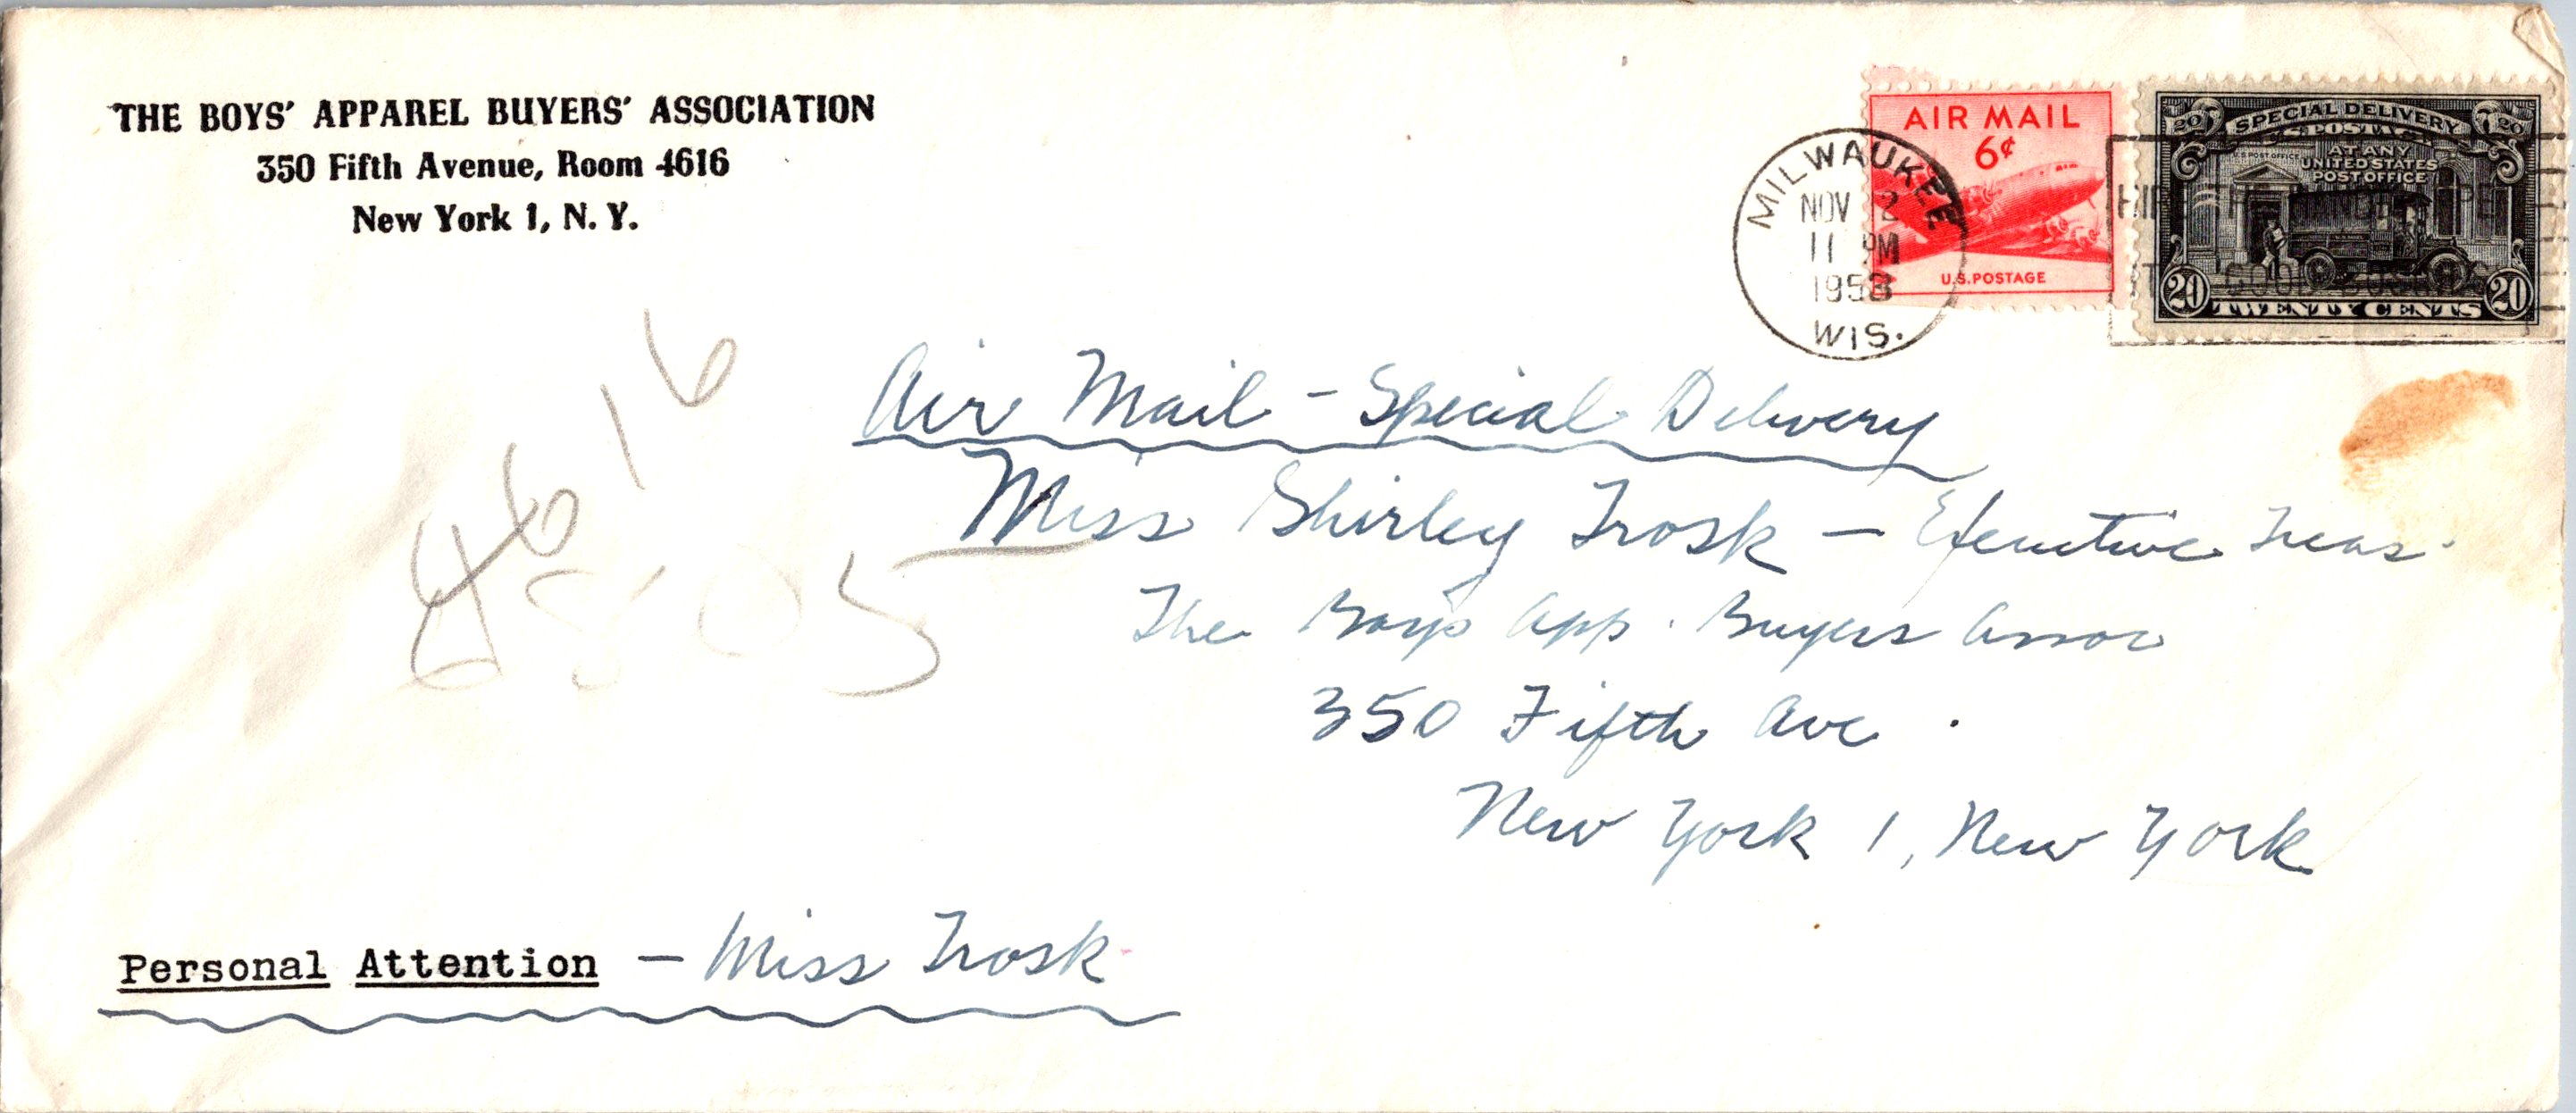 THE BOYS' APPAREL BUYERS' ASSOCIATION
350 Fifth Avenue, Room 4616
New York 1, N. Y.
MILWAUKEE
NOV 2
11 PM
1953
WIS.
AIR MAIL
6¢
U.S.POSTAGE
20 SPECIAL DELIVERY 20
U.S. POSTAGE
AT ANY
UNITED STATES
POST OFFICE
20 TWENTY CENTS 20
Air Mail - Special Delivery
Miss Shirley Trosk — Executive Treas.
The Boys App. Buyers Assoc
350 Fifth Ave.
New York 1, New York
4616
805
Personal Attention — Miss Trosk